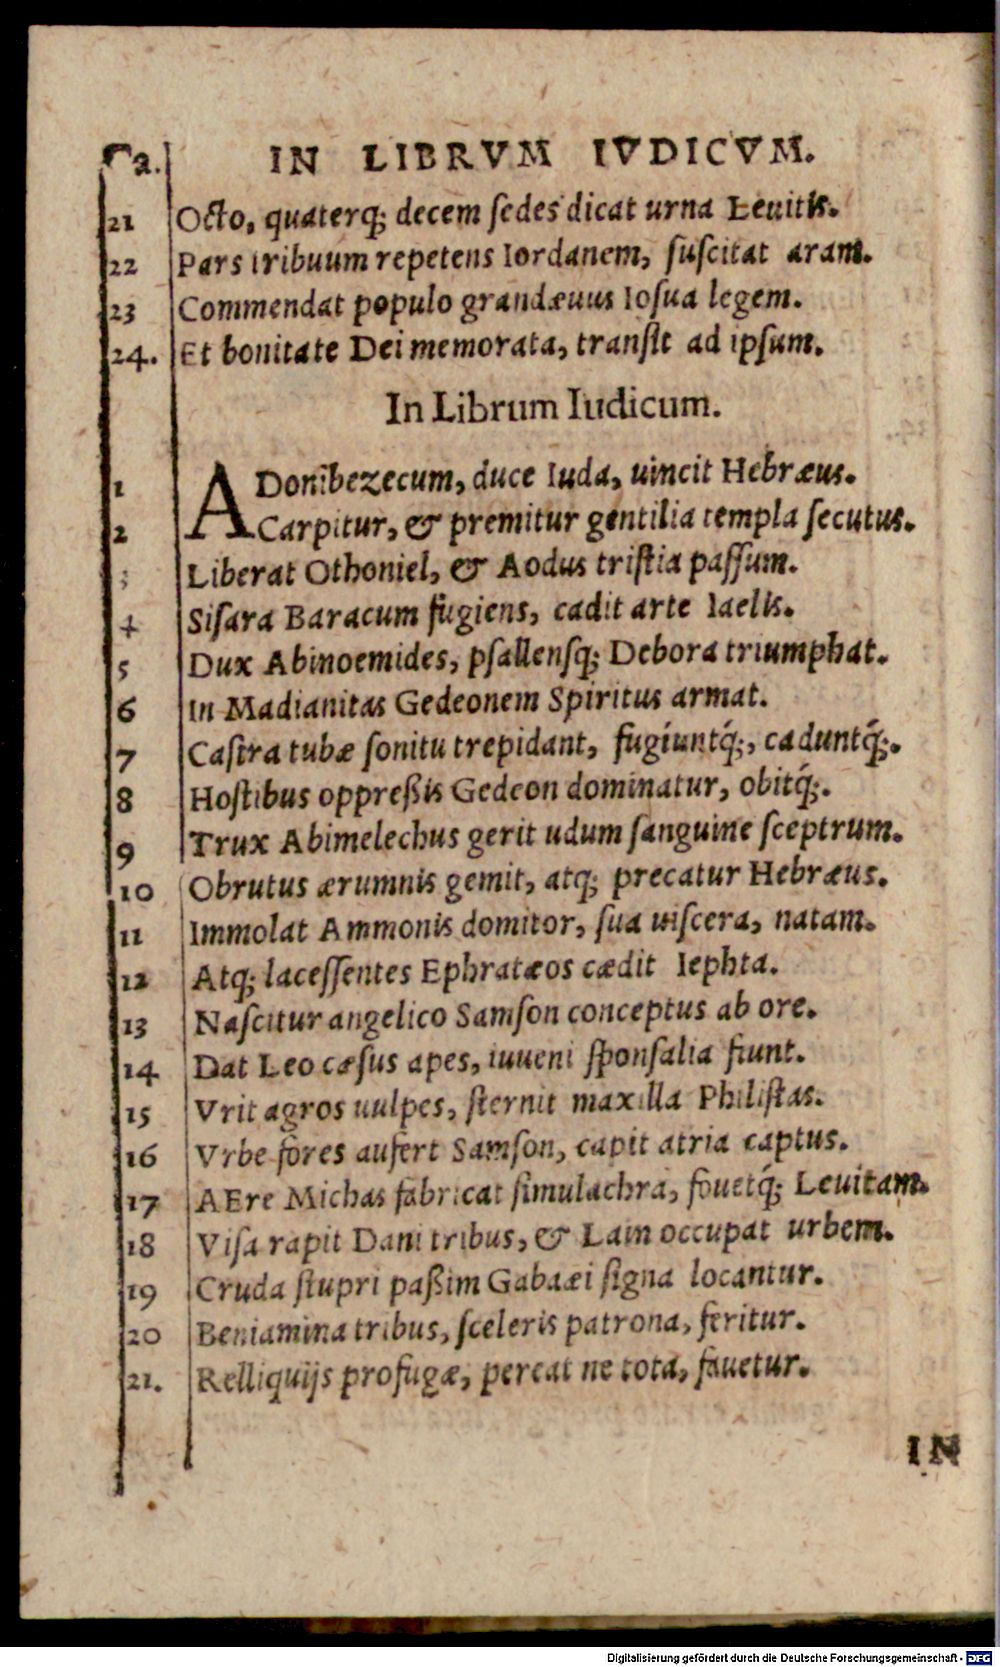 Ca. IN LIBRVM IVDICVM.
21 Octo, quaterq; decem ſedes dicat urna Leuitis.
22 Pars tribuum repetens Iordanem, ſuſcitat aram.
23 Commendat populo grandæuus Ioſua legem.
24. Et bonitate Dei memorata, tranſit ad ipſum.
In Librum Iudicum.
1 ADonibezecum, duce Iuda, uincit Hebræus.
2 Carpitur, & premitur gentilia templa ſecutus.
3 Liberat Othoniel, & Aodus triſtia paſſum.
4 Siſara Baracum fugiens, cadit arte Iaelis.
5 Dux Abinoemides, pſallenſq; Debora triumphat.
6 In Madianitas Gedeonem Spiritus armat.
7 Caſtra tubæ ſonitu trepidant, fugíuntq́;, caduntq́;.
8 Hoſtibus oppreßis Gedeon dominatur, obitq́;.
9 Trux Abimelechus gerit udum ſanguine ſceptrum.
10 Obrutus ærumnis gemit, atq; precatur Hebræus.
11 Immolat Ammonis domitor, ſua uiſcera, natam.
12 Atq; laceſſentes Ephratæos cædit Iephta.
13 Naſcitur angelico Samſon conceptus ab ore.
14 Dat Leo cæſus apes, iuueni ſponſalia fiunt.
15 Vrit agros uulpes, ſternit maxilla Philiſtas.
16 Vrbe fores aufert Samſon, capit atria captus.
17 AEre Michas fabricat ſimulachra, fouetq́; Leuitam.
18 Viſa rapit Dani tribus, & Lain occupat urbem.
19 Cruda ſtupri paßim Gabaæi ſigna locantur.
20 Beniamina tribus, ſceleris patrona, feritur.
21. Relliquijs profugæ, pereat ne tota, fauetur.
IN
Digitalisierung gefördert durch die Deutsche Forschungsgemeinschaft - DFG